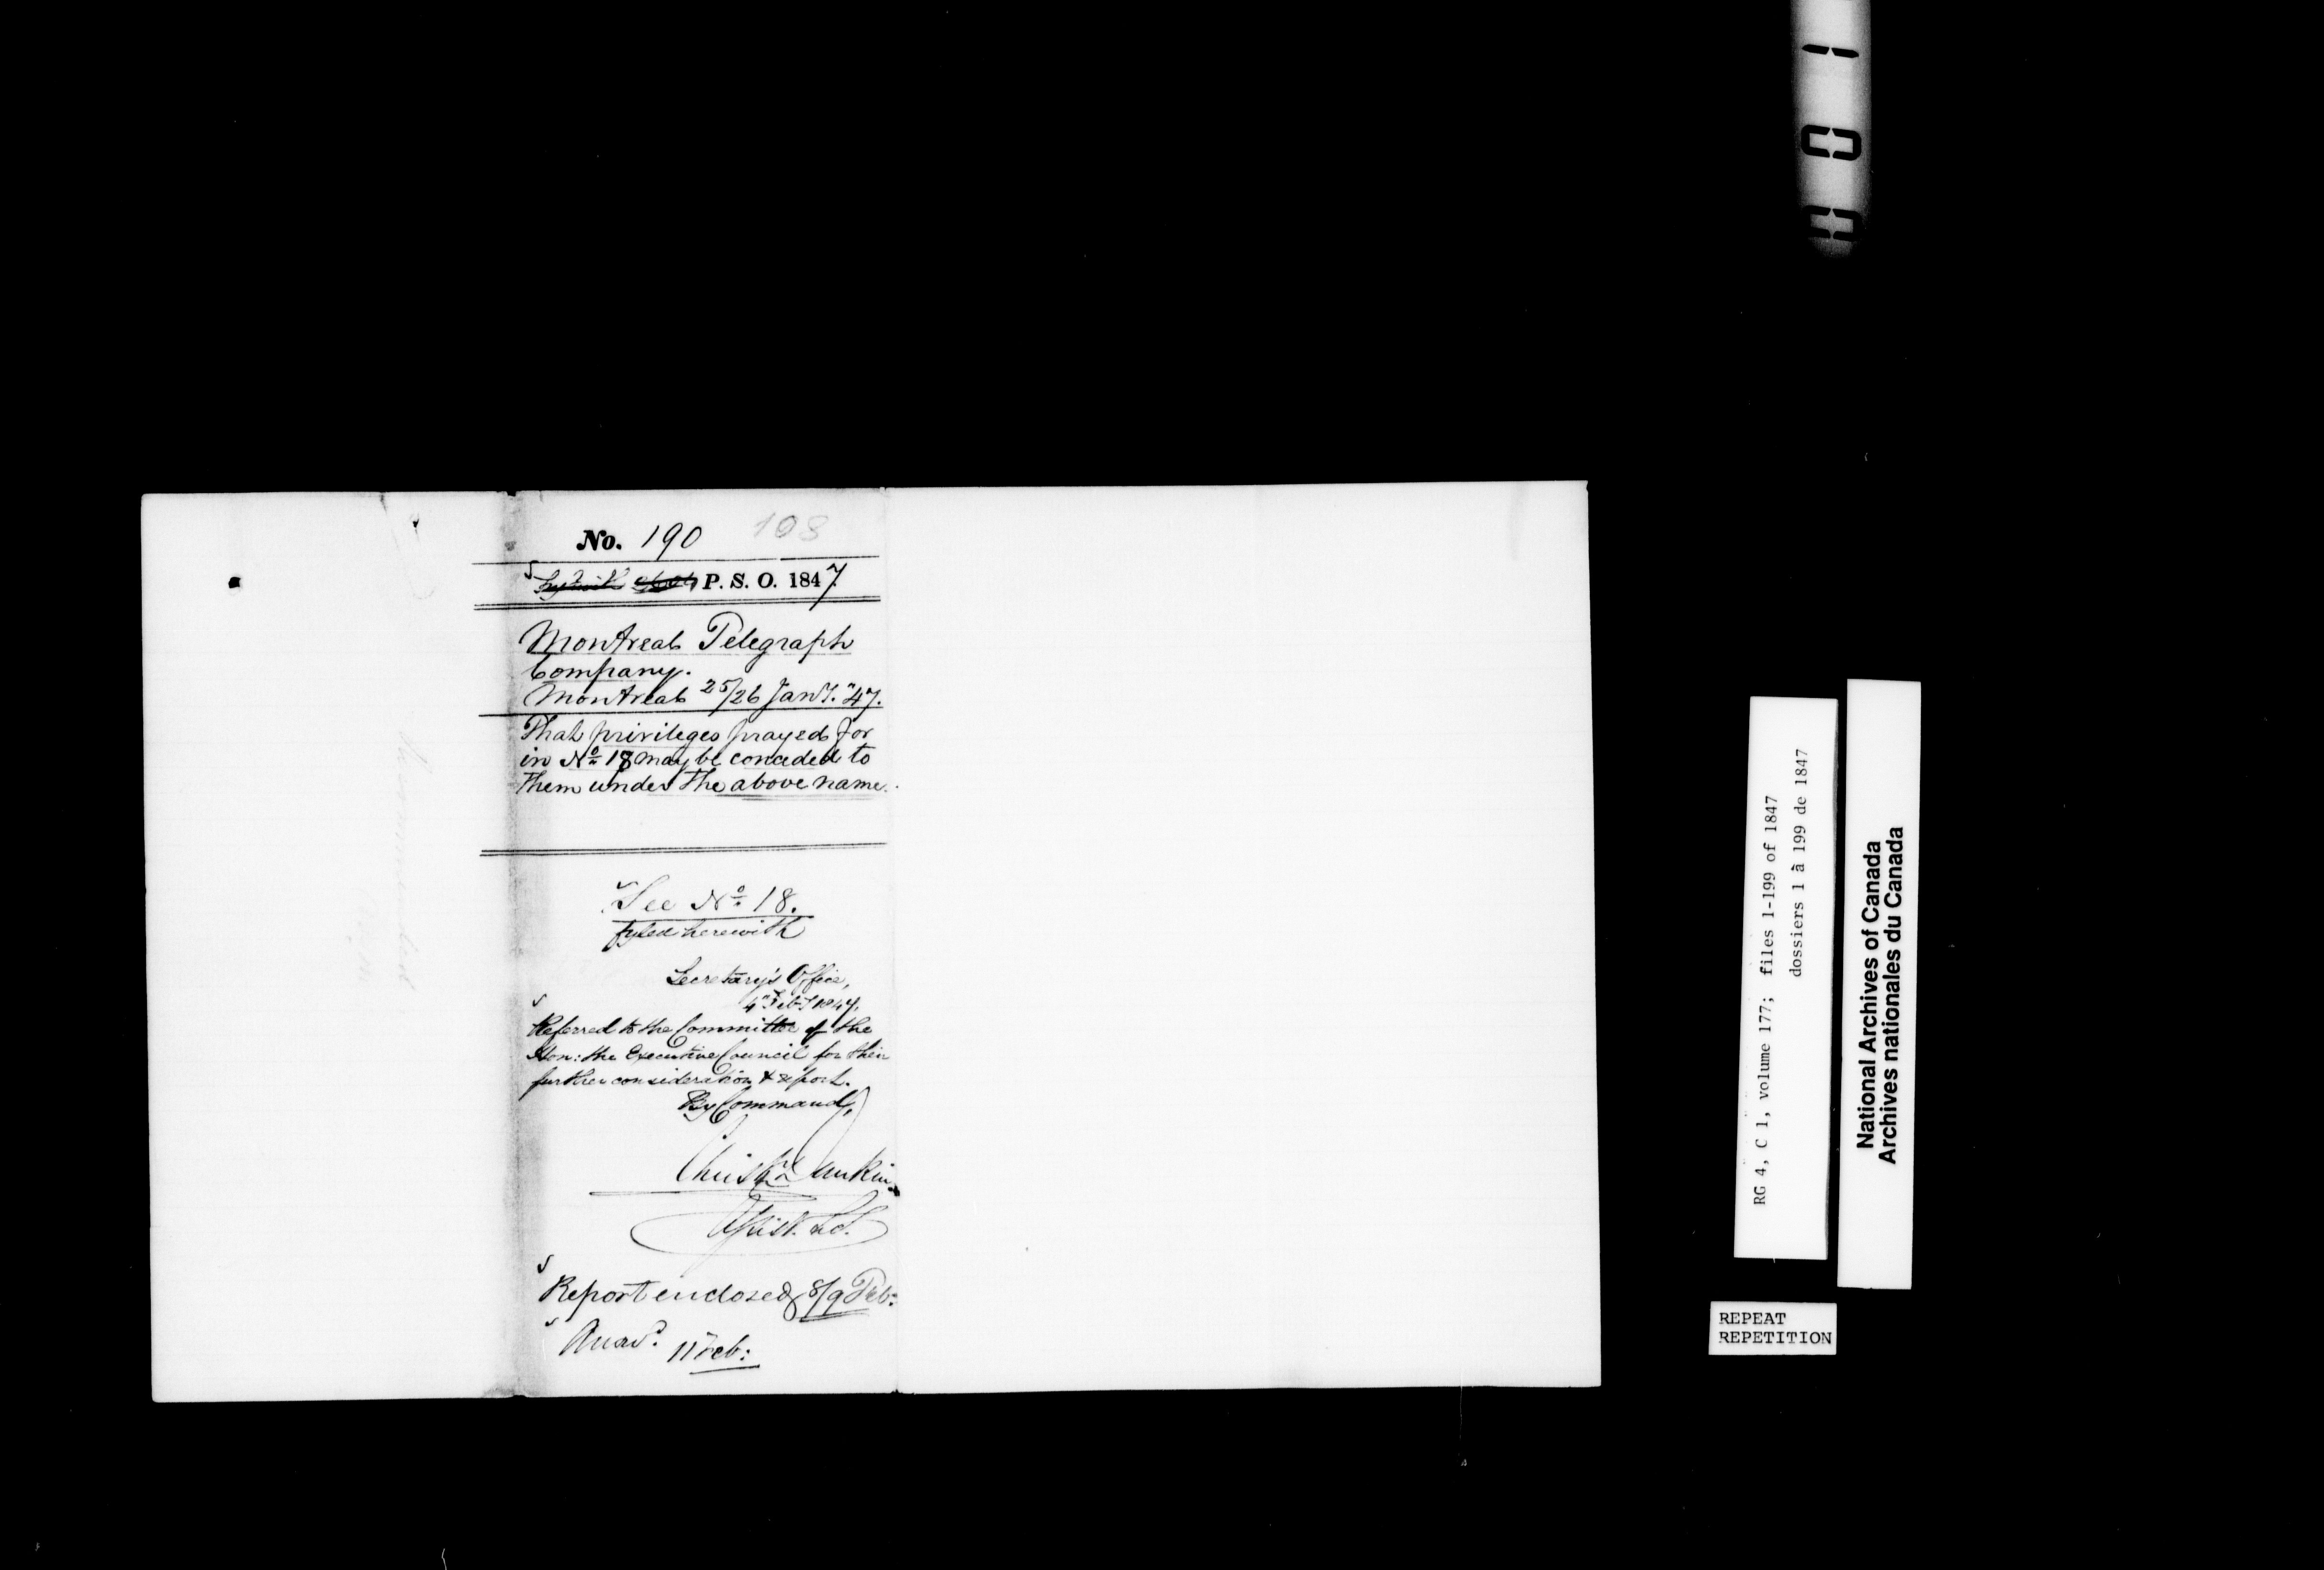 No. 190 108
P. S. O. 1847
Montreal Telegraph
Company.
Montreal 25/26 Jany. "47.
That privileges prayed for
in No. 18 may be conceded to
them under the above name.
See No. 18.
fyled herewith
Secretary's Office,
4" Feby 1847.
Referred to the Committee of the
Hon: the Executive Council for their
further consideration & report.
By Command,
Christr. Dunkin
Assist. Sec.
Report enclosed 8/9 Feb:
Answd. 11 Feb:
001
RG 4, C 1, volume 177; files 1-199 of 1847
dossiers 1 à 199 de 1847
National Archives of Canada
Archives nationales du Canada
REPEAT
REPETITION